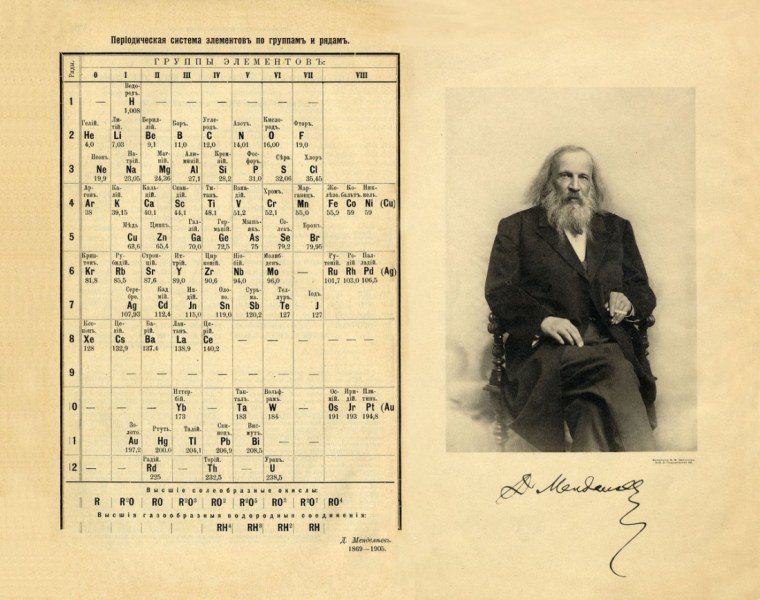 Періодическая система элементовъ по группамъ и рядамъ.
Ряды. ГРУППЫ ЭЛЕМЕНТОВЪ:
0 I II III IV V VI VII VIII
Водо-
родъ.
1 — H — — — — — —
1,008
Гелій. Ли-
тій. Берил-
лій. Боръ. Угле-
родъ. Азотъ. Кисло-
родъ. Фторъ.
2 He Li Be B C N O F
4,0 7,03 9,1 11,0 12,0 14,01 16,00 19,0
Неонъ. На-
трій. Маг-
ній. Алю-
миній. Крем-
ній. Фос-
форъ. Сѣра. Хлоръ
3 Ne Na Mg Al Si P S Cl
19,9 23,05 24,36 27,1 28,2 31,0 32,06 35,45
Ар-
гонъ. Ка-
лій. Каль-
цій. Скан-
дій. Ти-
танъ. Вана-
дій. Хромъ. Мар-
ганецъ. Же-
лѣзо. Ко-
бальтъ. Ник-
кель.
4 Ar K Ca Sc Ti V Cr Mn Fe Co Ni (Cu)
38 39,15 40,1 44,1 48,1 51,2 52,1 55,0 55,9 59 59
Мѣдь Цинкъ. Гал-
лій. Гер-
маній. Мышь-
якъ. Се-
ленъ. Бромъ.
5 Cu Zn Ga Ge As Se Br
63,6 65,4 70,0 72,5 75 79,2 79,95
Крип-
тонъ. Ру-
бидій. Строн-
цій. Ит-
трій. Цир-
коній. Ніо-
бій. Молиб-
денъ. Ру-
теній. Ро-
дій. Пал-
ладій.
6 Kr Rb Sr Y Zr Nb Mo — Ru Rh Pd (Ag)
81,8 85,5 87,6 89,0 90,6 94,0 96,0 101,7 103,0 106,5
Сереб-
ро. Кад-
мій. Ин-
дій. Оло-
во. Сурь-
ма. Тел-
луръ. Іодъ.
7 Ag Cd Jn Sn Sb Te J
107,93 112,4 115,0 119,0 120,2 127 127
Ксе-
нонъ. Це-
зій. Ба-
рій. Лан-
танъ. Це-
рій.
8 Xe Cs Ba La Ce — — — — — —
128 132,9 137,4 138,9 140,2
9 — — — — — — —
Иттер-
бій. Тан-
талъ. Вольф-
рамъ. Ос-
мій. Ири-
дій. Пла-
тина.
0 — — — Yb — Ta W — Os Jr Pt (Au
173 183 184 191 193 194,8
Зо-
лото. Ртуть. Талій. Сви-
нецъ. Вис-
мутъ.
1 Au Hg Tl Pb Bi — —
197,2 200,0 204,1 206,9 208,5
Радій. Торій. Уранъ.
2 — — Rd — Th — U
225 232,5 238,5
Высшіе солеобразные окислы:
R R²O RO R²O³ RO² R²O⁵ RO³ R²O⁷ RO⁴
Высшія газообразныя водородныя соединенія:
RH⁴ RH³ RH² RH
Д. Менделѣевъ.
1869—1905.